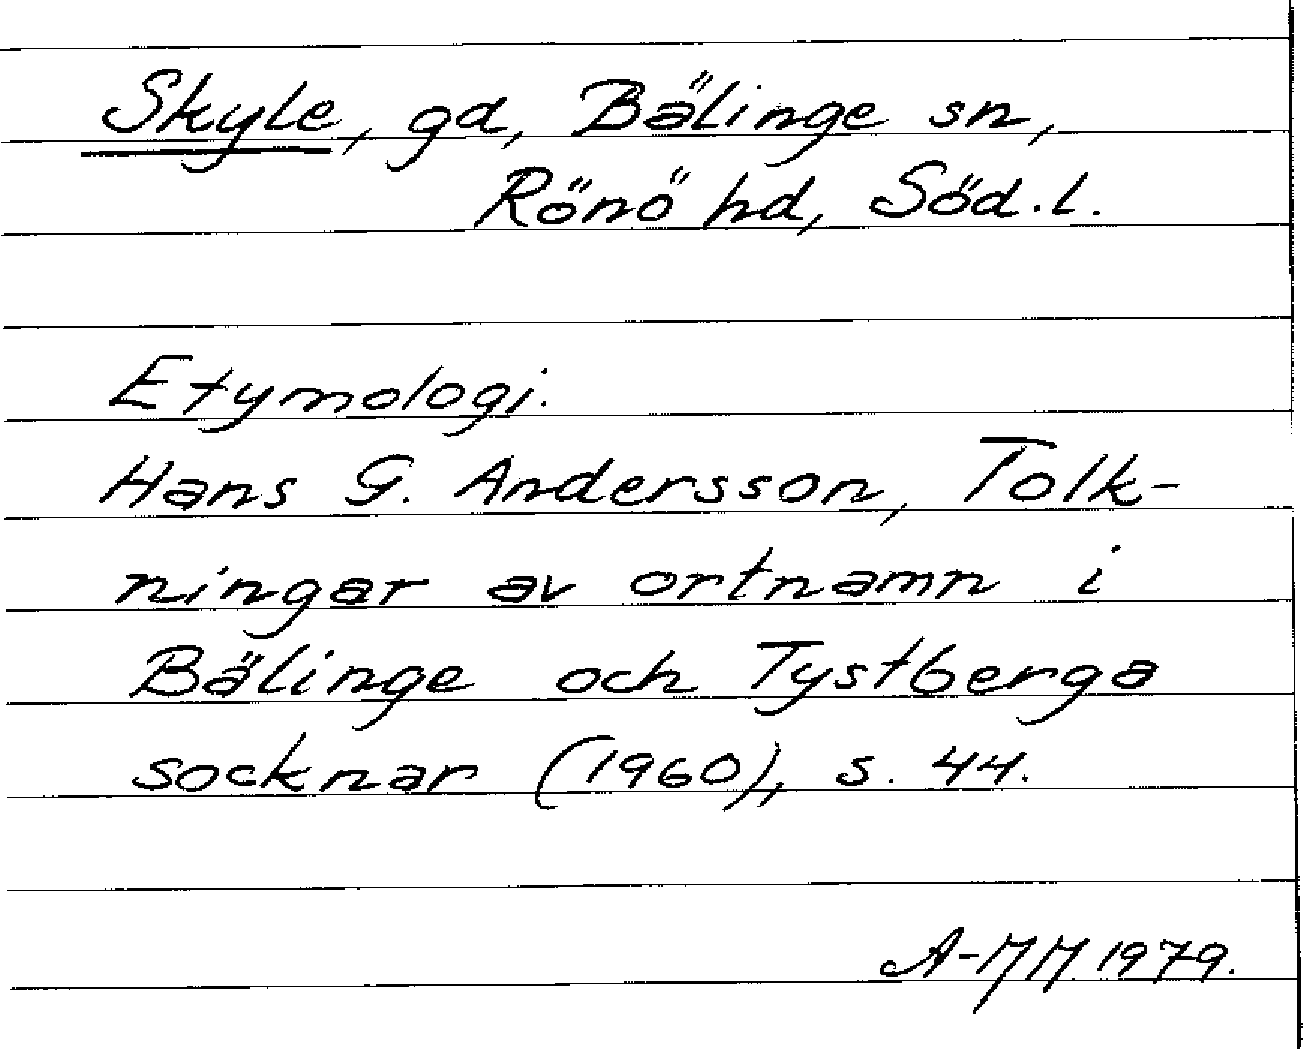 Skyle, gd, Bälinge sn,
Rönö hd, Söd.l.
Etymologi.
Hans G. Andersson, Tolk-
ningar av ortnamn i
Bälinge och Tystberga
socknar (1960), s. 44.
A-MM 1979.